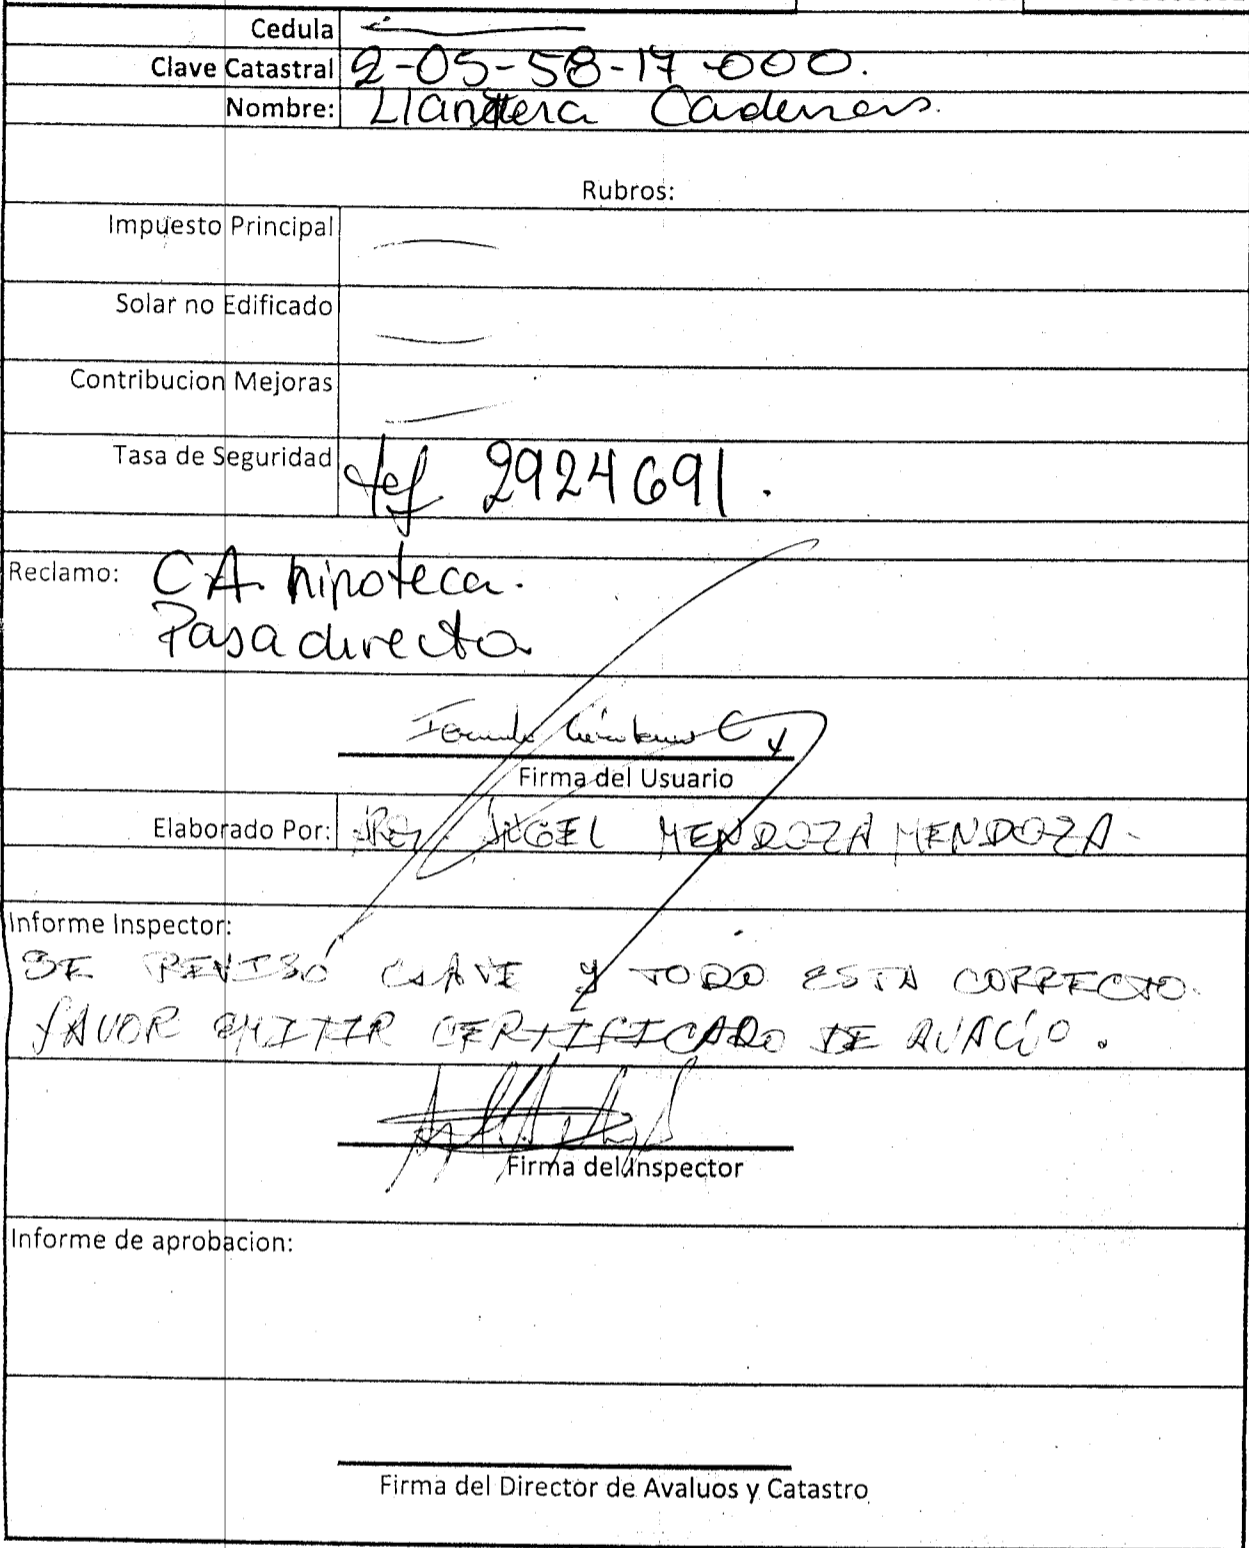 Cedula
Clave Catastral 2-05-58-17-000.
Nombre: Llantera Cadenas.
Rubros:
Impuesto Principal
Solar no Edificado
Contribucion Mejoras
Tasa de Seguridad telf 2924691.
Reclamo: CA hipoteca.
Pasa directo
Firma del Usuario
Elaborado Por: ANGEL MENDOZA MENDOZA-
Informe Inspector:
SE REVISÓ CLAVE Y TODO ESTA CORRECTO.
FAVOR EMITIR CERTIFICADO DE AVALÚO.
Firma del Inspector
Informe de aprobacion:
Firma del Director de Avaluos y Catastro